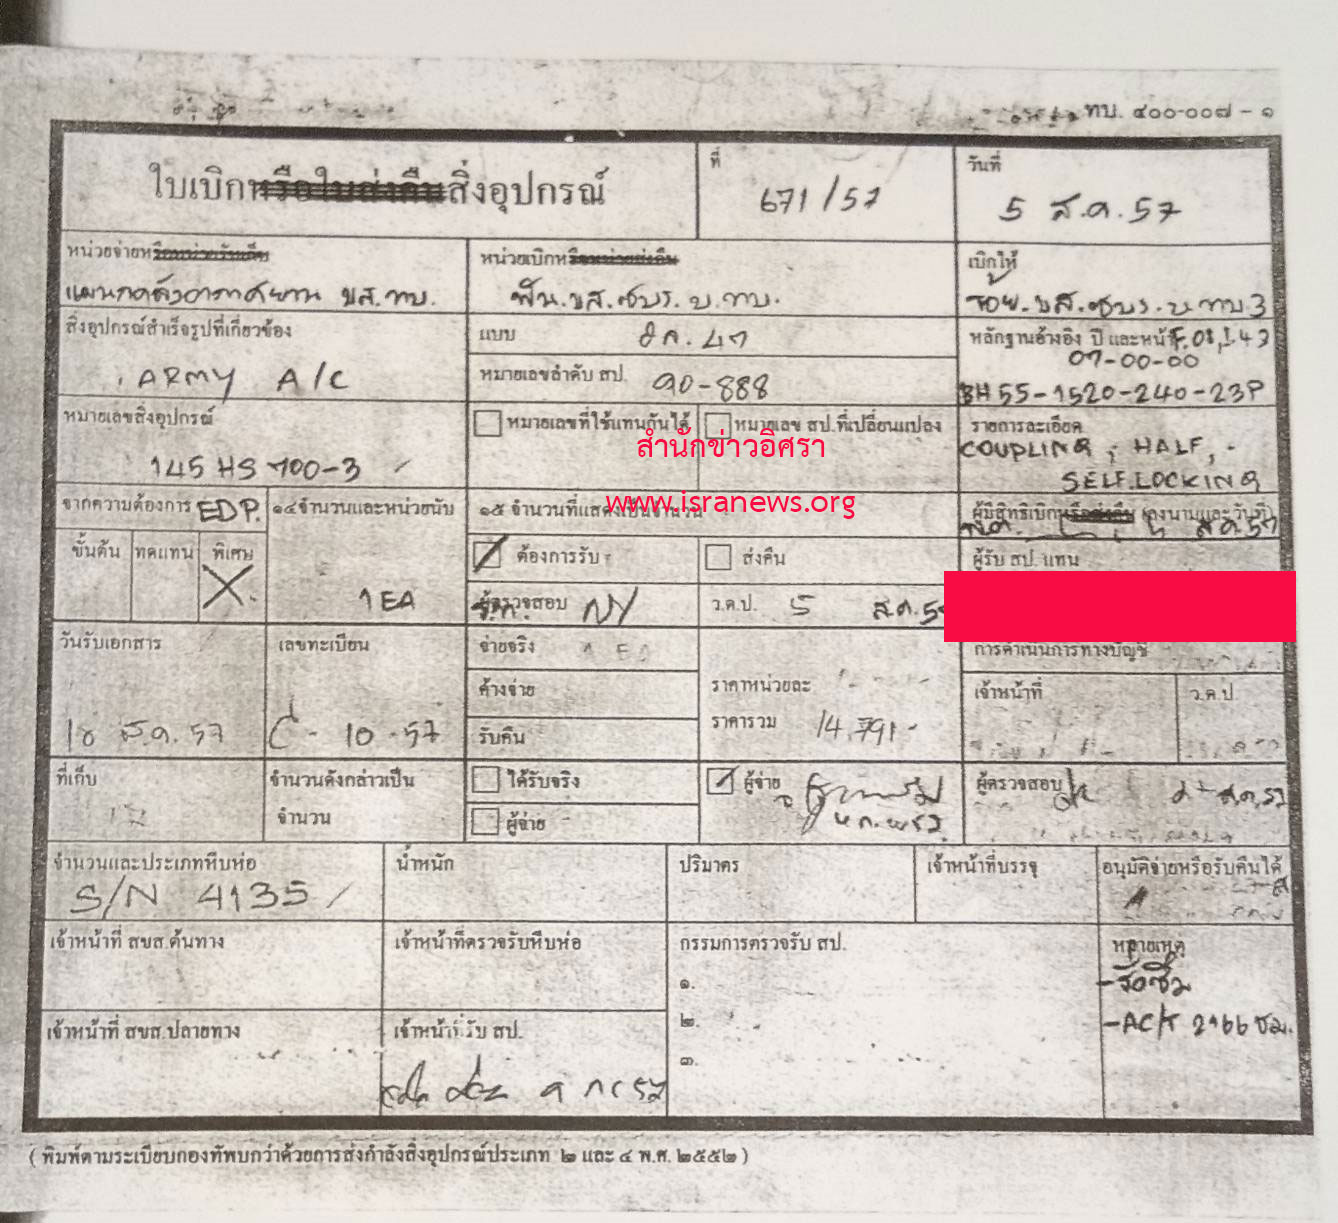 ทบ. ๔๐๐-๐๐๗ - ๑
ใบเบิกหรือใบส่งคืนสิ่งอุปกรณ์
ที่
671/57
วันที่
5 ส.ค. 57
หน่วยจ่ายหรือหน่วยรับคืน
แผนกคลังอากาศยาน ขส.ทบ.
หน่วยเบิกหรือหน่วยส่งคืน
เบิกให้
สิ่งอุปกรณ์สำเร็จรูปที่เกี่ยวข้อง
ARMY A/C
แบบ
ฮท. 47
หมายเลขลำดับ สป.
90-888
หลักฐานอ้างอิง ปี และหน้า
07-00-00
BH 55-1520-240-23P
หมายเลขสิ่งอุปกรณ์
145 HS 700-3
หมายเลขที่ใช้แทนกันได้
หมายเลข สป.ที่เปลี่ยนแปลง
สำนักข่าวอิศรา
www.isranews.org
รายการละเอียด
COUPLING, HALF,
SELF.LOCKING
จากความต้องการ EDP.
ขั้นต้น
ทดแทน
พิเศษ
๑๔จำนวนและหน่วยนับ
1 EA
๑๕ จำนวนที่แสดงเป็นจำนวน
ต้องการรับ
ส่งคืน
ผู้มีสิทธิเบิกหรือส่งคืน (ลงนามและวันที่)
ส.ค. 57
ผู้รับ สป. แทน
ผู้ตรวจสอบ
ว.ด.ป. 5 ส.ค. 5
วันรับเอกสาร
ส.ค. 57
เลขทะเบียน
C - 10 - 57
จ่ายจริง
ค้างจ่าย
รับคืน
ราคาหน่วยละ
ราคารวม 14,791.-
การดำเนินการทางบัญชี
เจ้าหน้าที่
ว.ด.ป
ที่เก็บ
จำนวนดังกล่าวเป็น
จำนวน
ได้รับจริง
ผู้จ่าย
ผู้จ่าย
ผู้ตรวจสอบ
จำนวนและประเภทหีบห่อ
S/N 4135
น้ำหนัก
ปริมาตร
เจ้าหน้าที่บรรจุ
อนุมัติจ่ายหรือรับคืนได้
เจ้าหน้าที่ สขส.ต้นทาง
เจ้าหน้าที่ตรวจรับหีบห่อ
กรรมการตรวจรับ สป.
๑.
๒.
๓.
หมายเหตุ
- จัดซื้อ
- AC/T 2166 ชม.
เจ้าหน้าที่ สขส.ปลายทาง
เจ้าหน้าที่รับ สป.
( พิมพ์ตามระเบียบกองทัพบกว่าด้วยการส่งกำลังสิ่งอุปกรณ์ประเภท ๒ และ ๔ พ.ศ. ๒๕๕๒ )